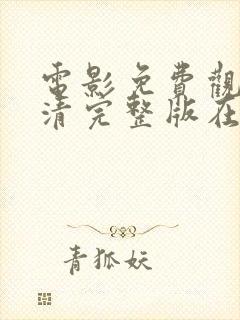 電影免費觀
清完整版在
青狐妖